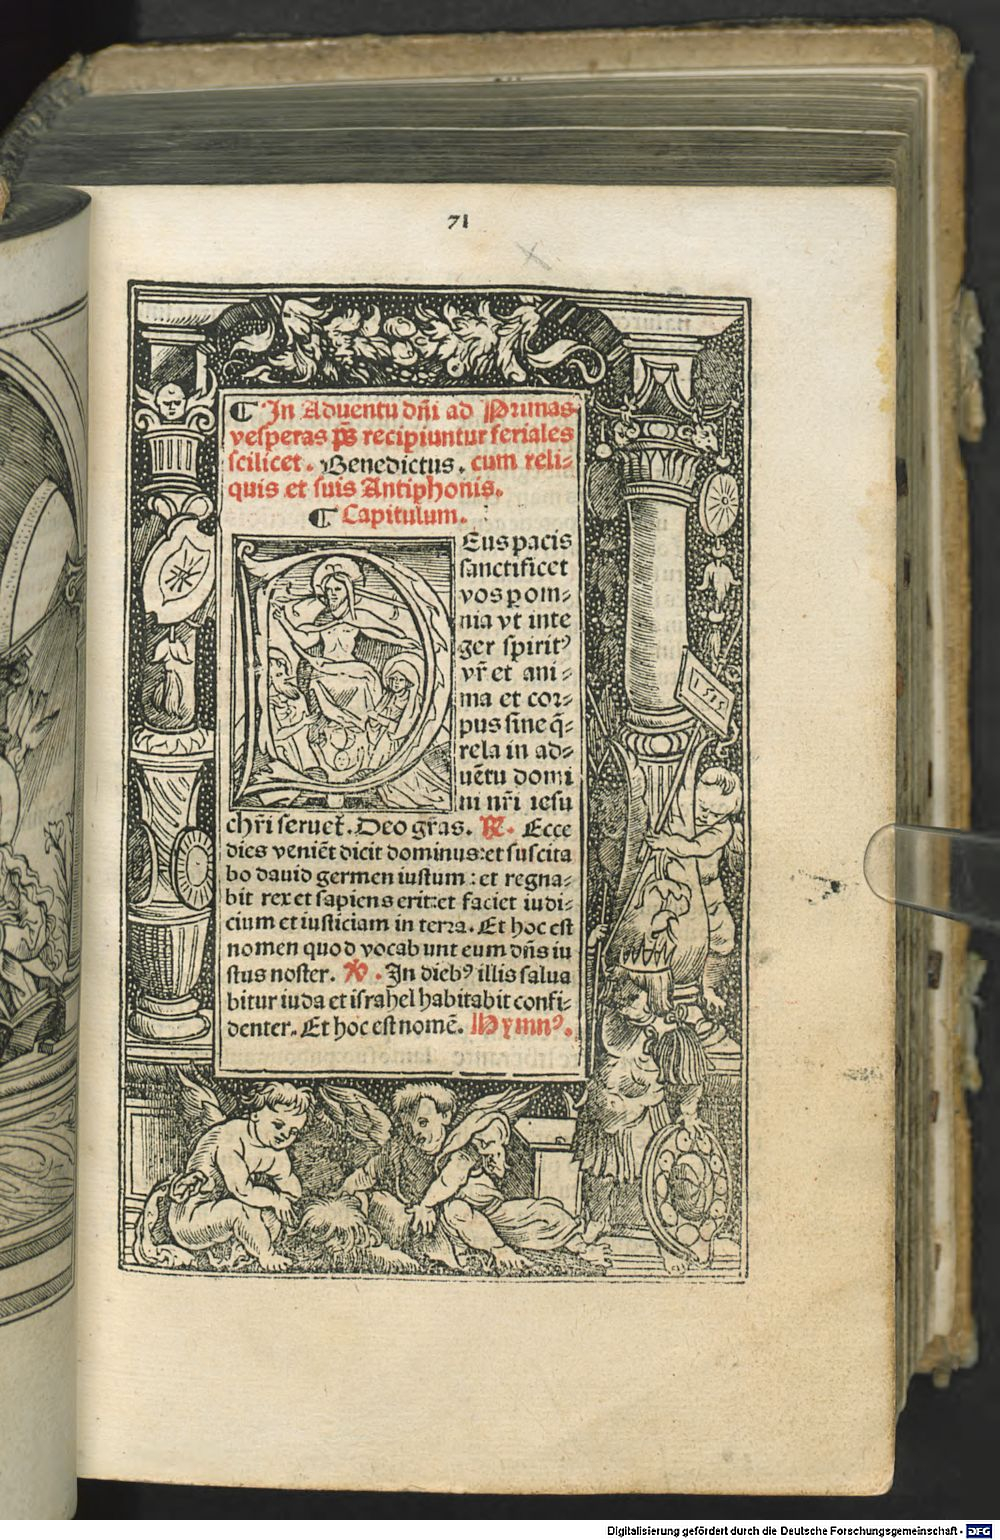 71
¶ In Aduentu dn̄i ad Primas
vesperas ps̄ recipiuntur feriales
scilicet. Benedictus. cum reli⸗
quis et suis Antiphonis.
¶ Capitulum.
DEus pacis
sanctificet
vos ꝑ om⸗
nia vt inte
ger spiritꝰ
vr̄ et ani⸗
ma et cor⸗
pus sine q̄⸗
rela in ad⸗
uētu domi
ni nr̄i iesu
chr̄i seruet. Deo gr̄as. ℟. Ecce
dies veniēt dicit dominus: et suscita
bo dauid germen iustum: et regna⸗
bit rex et sapiens erit: et faciet iudi⸗
cium et iusticiam in terra. Et hoc est
nomen quod vocabunt eum dn̄s iu
stus noster. ℣. In diebꝰ illis salua
bitur iuda et israhel habitabit confi⸗
denter. Et hoc est nomē. Hymnꝰ.
Digitalisierung gefördert durch die Deutsche Forschungsgemeinschaft - DFG